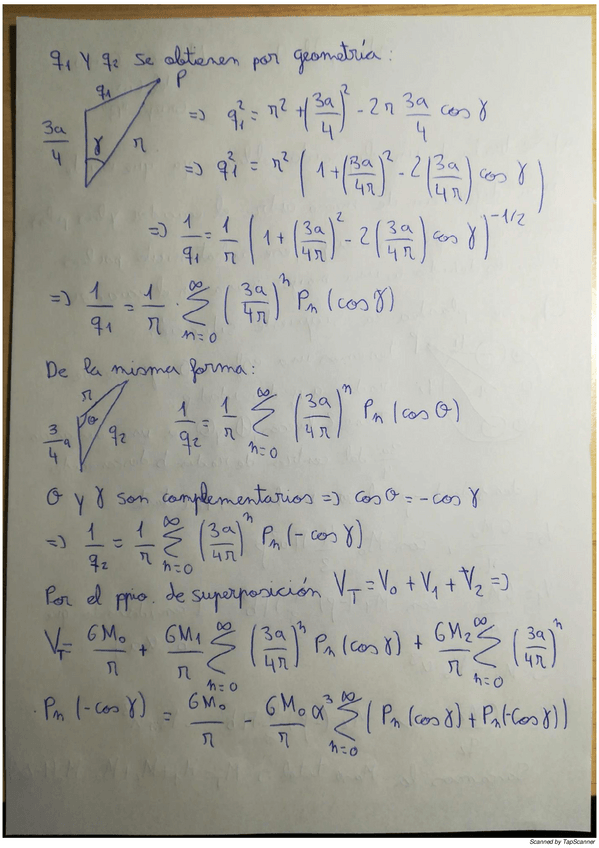 q₁ y q₂ se obtienen por geometría:
q₁ P
3a/4 γ r
=> q₁² = r² + (3a/4)² - 2r 3a/4 cos γ
=> q₁² = r² (1 + (3a/4r)² - 2(3a/4r) cos γ)
=> 1/q₁ = 1/r (1 + (3a/4r)² - 2(3a/4r) cos γ)^(-1/2)
=> 1/q₁ = 1/r · ∑_{n=0}^∞ (3a/4r)^n Pₙ(cos γ)
De la misma forma:
r
3/4 a θ q₂
1/q₂ = 1/r ∑_{n=0}^∞ (3a/4r)^n Pₙ(cos θ)
θ y γ son complementarios => cos θ = -cos γ
=> 1/q₂ = 1/r ∑_{n=0}^∞ (3a/4r)^n Pₙ(-cos γ)
Por el ppio. de superposición V_T = V₀ + V₁ + V₂ =>
V_T = GM₀/r + GM₁/r ∑_{n=0}^∞ (3a/4r)^n Pₙ(cos γ) + GM₂/r ∑_{n=0}^∞ (3a/4r)^n
· Pₙ(-cos γ) = GM₀/r - GM₀/r α³ ∑_{n=0}^∞ (Pₙ(cos γ) + Pₙ(-cos γ))
Scanned by TapScanner